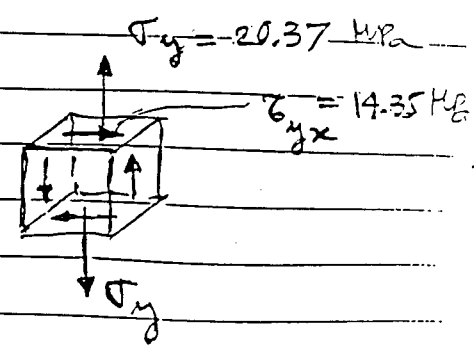 σy = 20.37 MPa
τyx = 14.35 MPa
σy